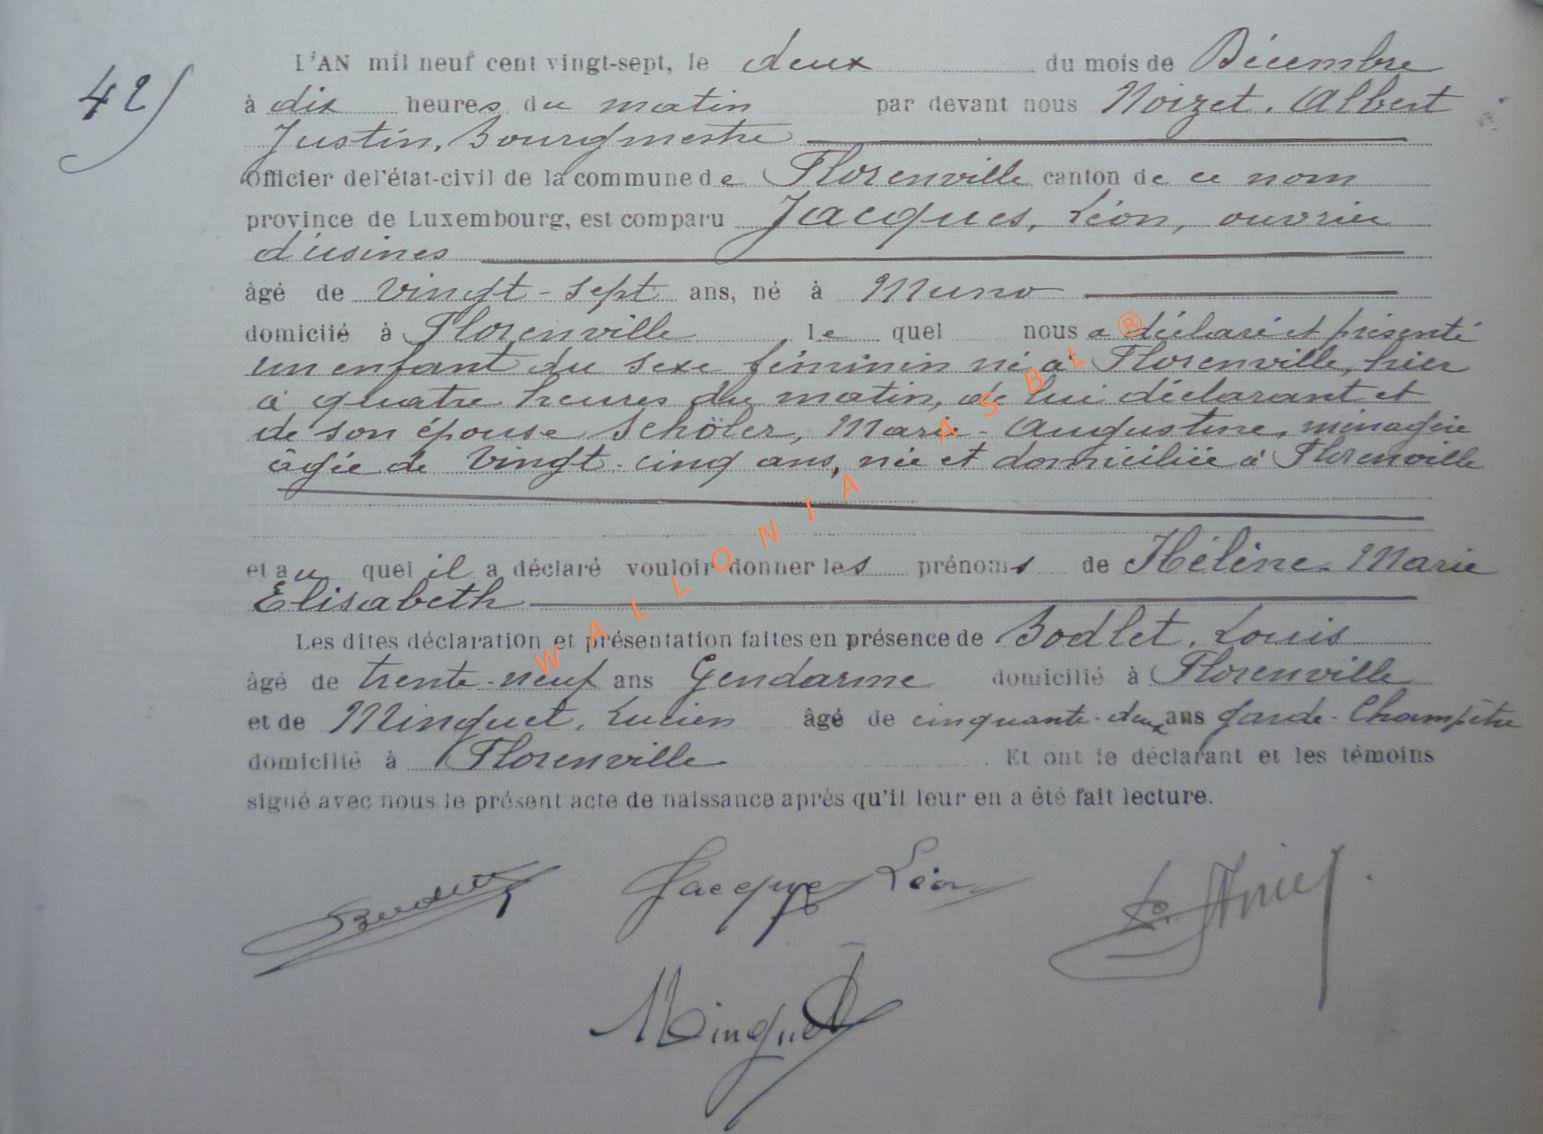 42)
L'AN mil neuf cent vingt-sept, le deux du mois de Décembre
à dix heures du matin par devant nous Noizet, Albert
Justin, Bourgmestre
Officier de l'état-civil de la commune de Florenville canton de ce nom
province de Luxembourg, est comparu Jacques, Léon, ouvrier
d'usines
âgé de vingt-sept ans, né à Muno
domicilié à Florenville le quel nous a déclaré et présenté
un enfant du sexe féminin né à Florenville, hier
à quatre heures du matin, de lui déclarant et
de son épouse Schöler, Marie-Augustine, ménagère
âgée de vingt-cinq ans, née et domiciliée à Florenville
et au quel il a déclaré vouloir donner les prénoms de Hélène-Marie
Elisabeth
Les dites déclaration et présentation faites en présence de Bodlet, Louis
âgé de trente-neuf ans Gendarme domicilié à Florenville
et de Minguet, Lucien âgé de cinquante-deux ans garde-Champêtre
domicilié à Florenville. Et ont le déclarant et les témoins
signé avec nous le présent acte de naissance après qu'il leur en a été fait lecture.
Jacques Léon
Minguet
WALLONIA ASBL ®